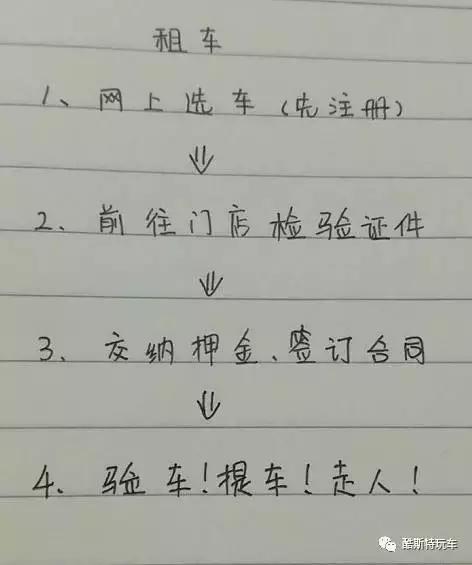 租车
1、网上选车(先注册)
⇓
2、前往门店检验证件
⇓
3、交纳押金、签订合同
⇓
4、验车!提车!走人!
酷斯特玩车